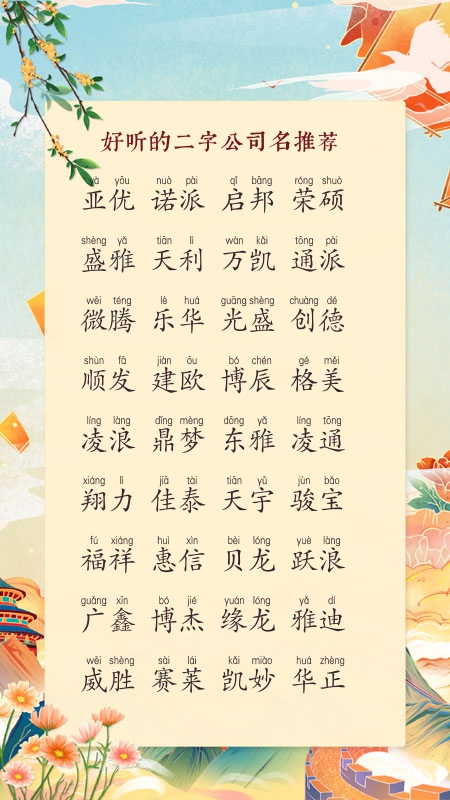 好听的二字公司名推荐
yà yōu nuò pài qǐ bāng róng shuò
亚优 诺派 启邦 荣硕
shèng yǎ tiān lì wàn kǎi tōng pài
盛雅 天利 万凯 通派
wēi téng lè huá guāng shèng chuàng dé
微腾 乐华 光盛 创德
shùn fā jiàn ōu bó chén gé měi
顺发 建欧 博辰 格美
líng làng dǐng mèng dōng yǎ líng tōng
凌浪 鼎梦 东雅 凌通
xiáng lì jiā tài tiān yǔ jùn bǎo
翔力 佳泰 天宇 骏宝
fú xiáng huì xìn bèi lóng yuè làng
福祥 惠信 贝龙 跃浪
guǎng xīn bó jié yuán lóng yǎ dí
广鑫 博杰 缘龙 雅迪
wēi shèng sài lái kǎi miào huá zhèng
威胜 赛莱 凯妙 华正